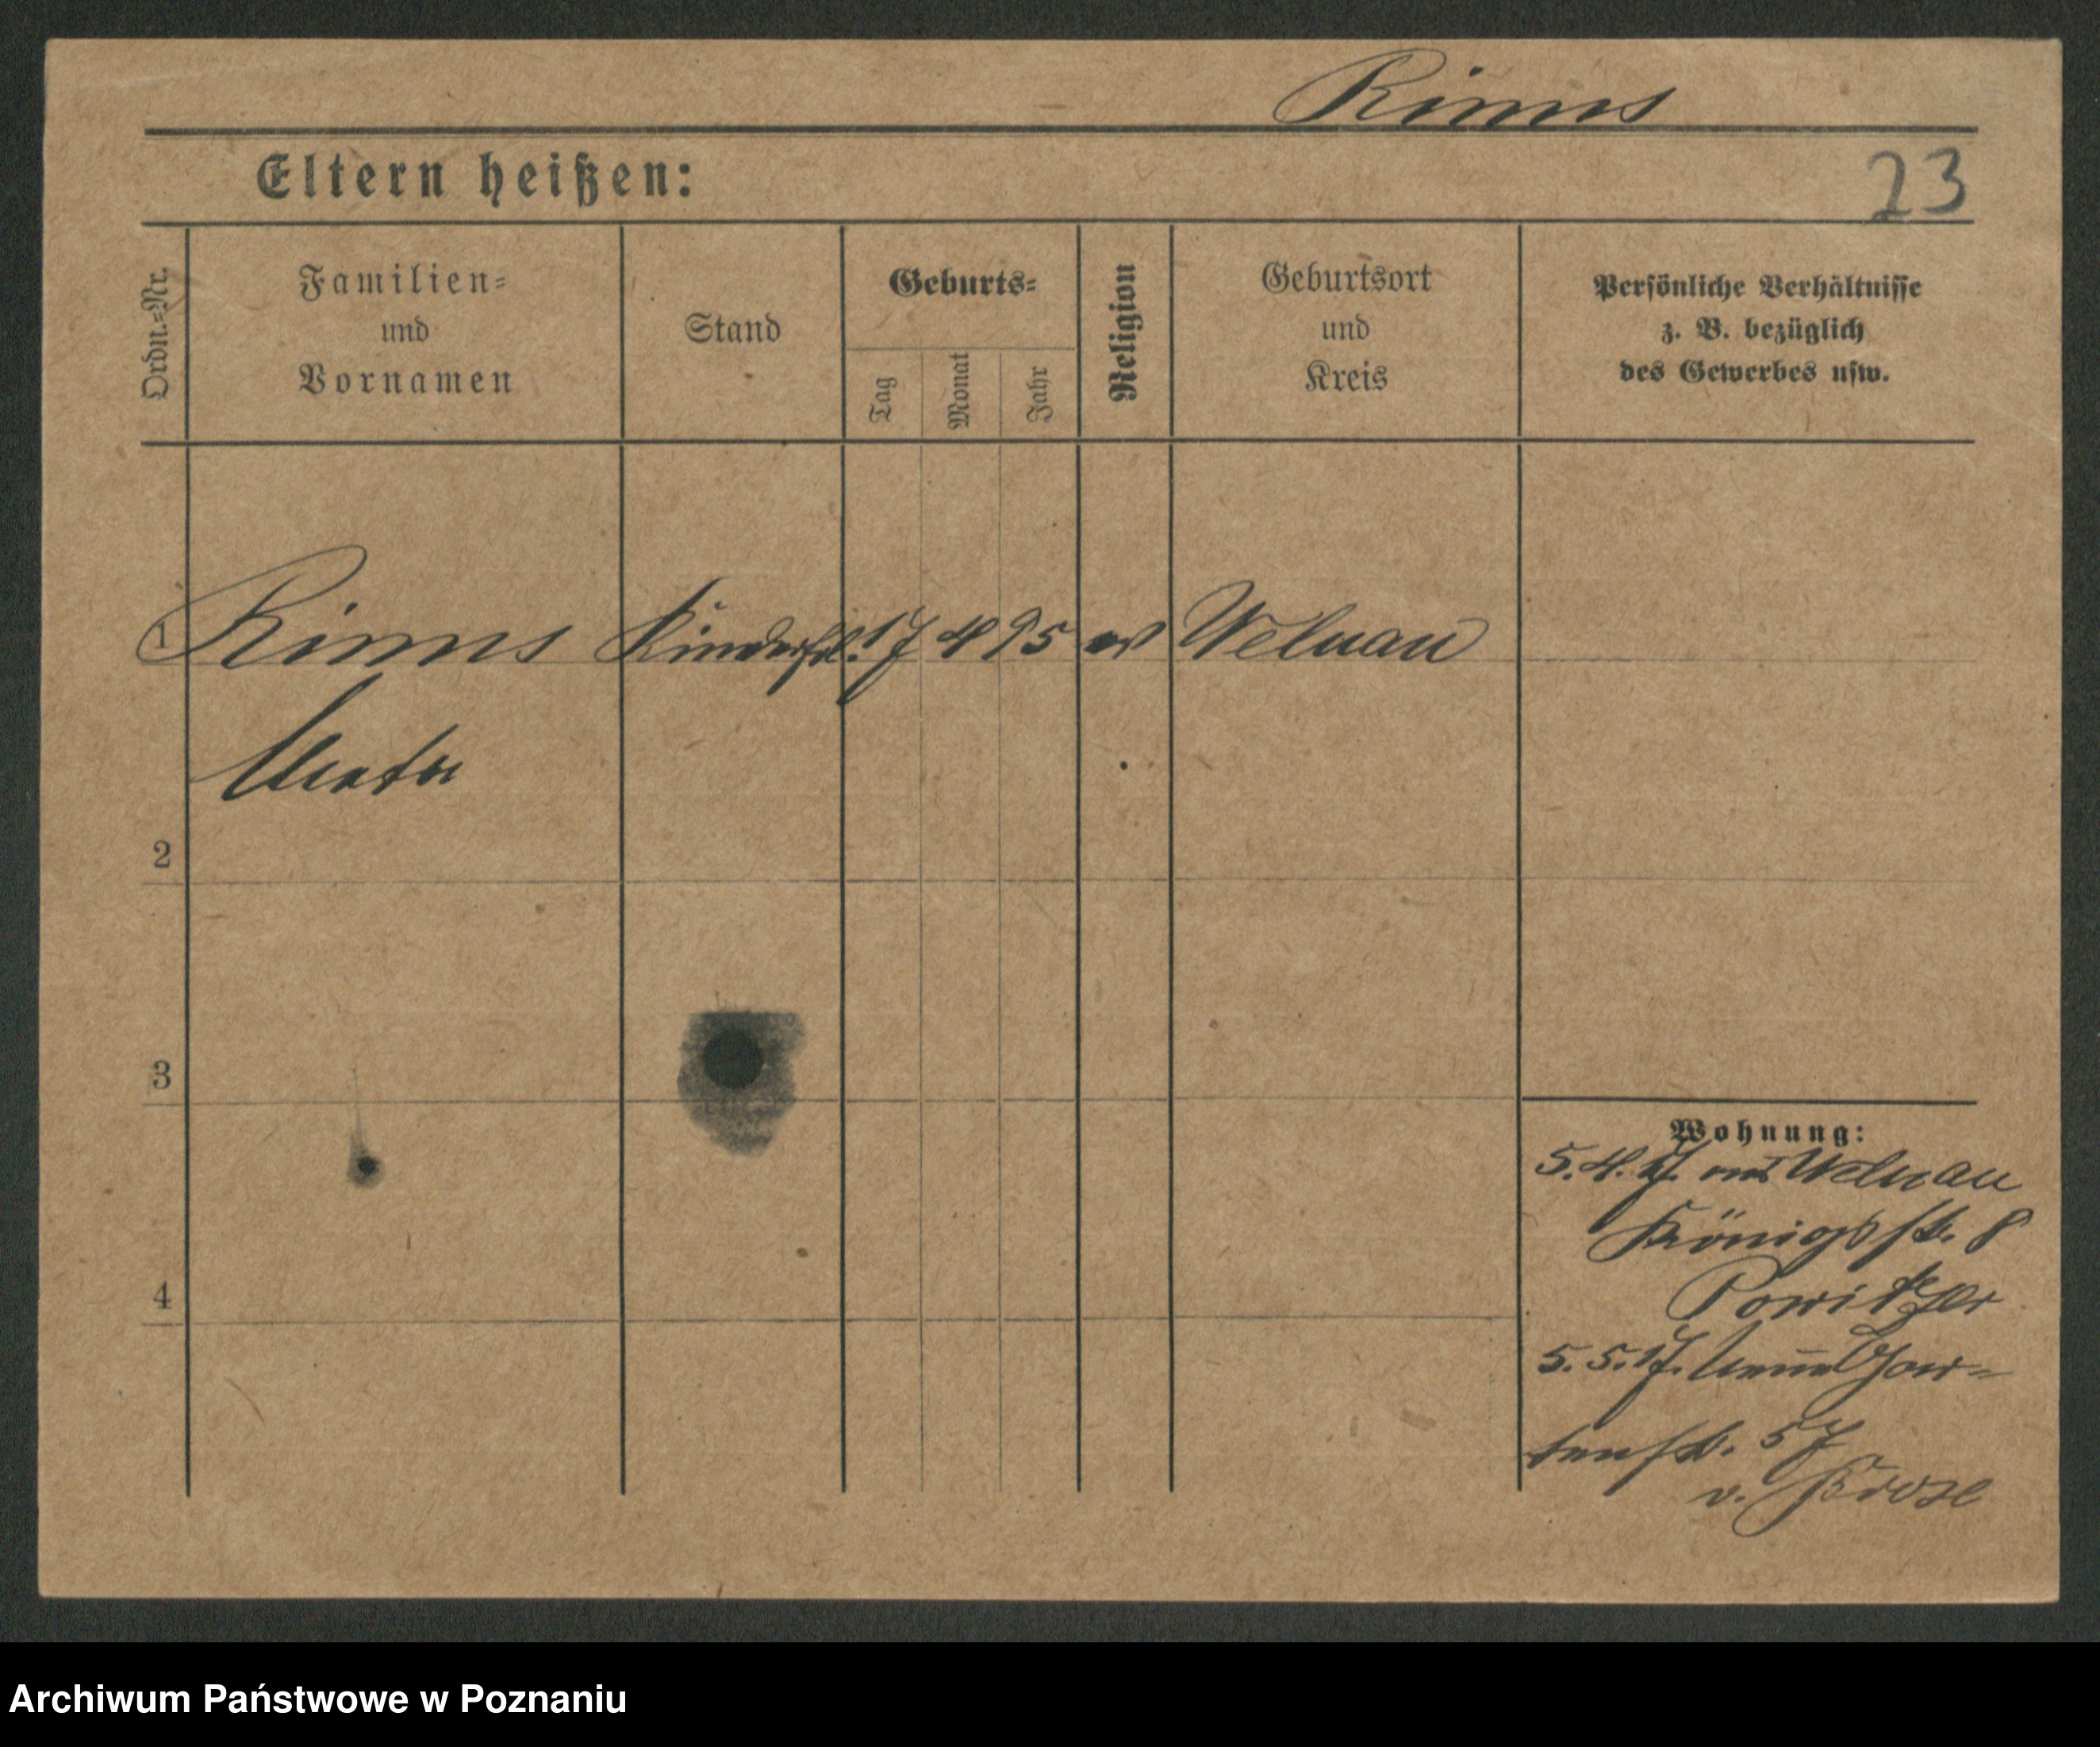 Rinns
Eltern heißen:
23
Ordn.=Nr.
Familien=
und
Vornamen
Stand
Geburts=
Tag
Monat
Jahr
Religion
Geburtsort
und
Kreis
Persönliche Verhältnisse
z. B. bezüglich
des Gewerbes usw.
1 Rinns Kinderfrl. 17 4 95 ev Welnau
2
3
4
Wohnung:
5. 4. 17. aus Welnau
Königstr. 8
Powitzer
5. 5. 17. Neue Gar=
tenstr. 57
v.
Archiwum Państwowe w Poznaniu